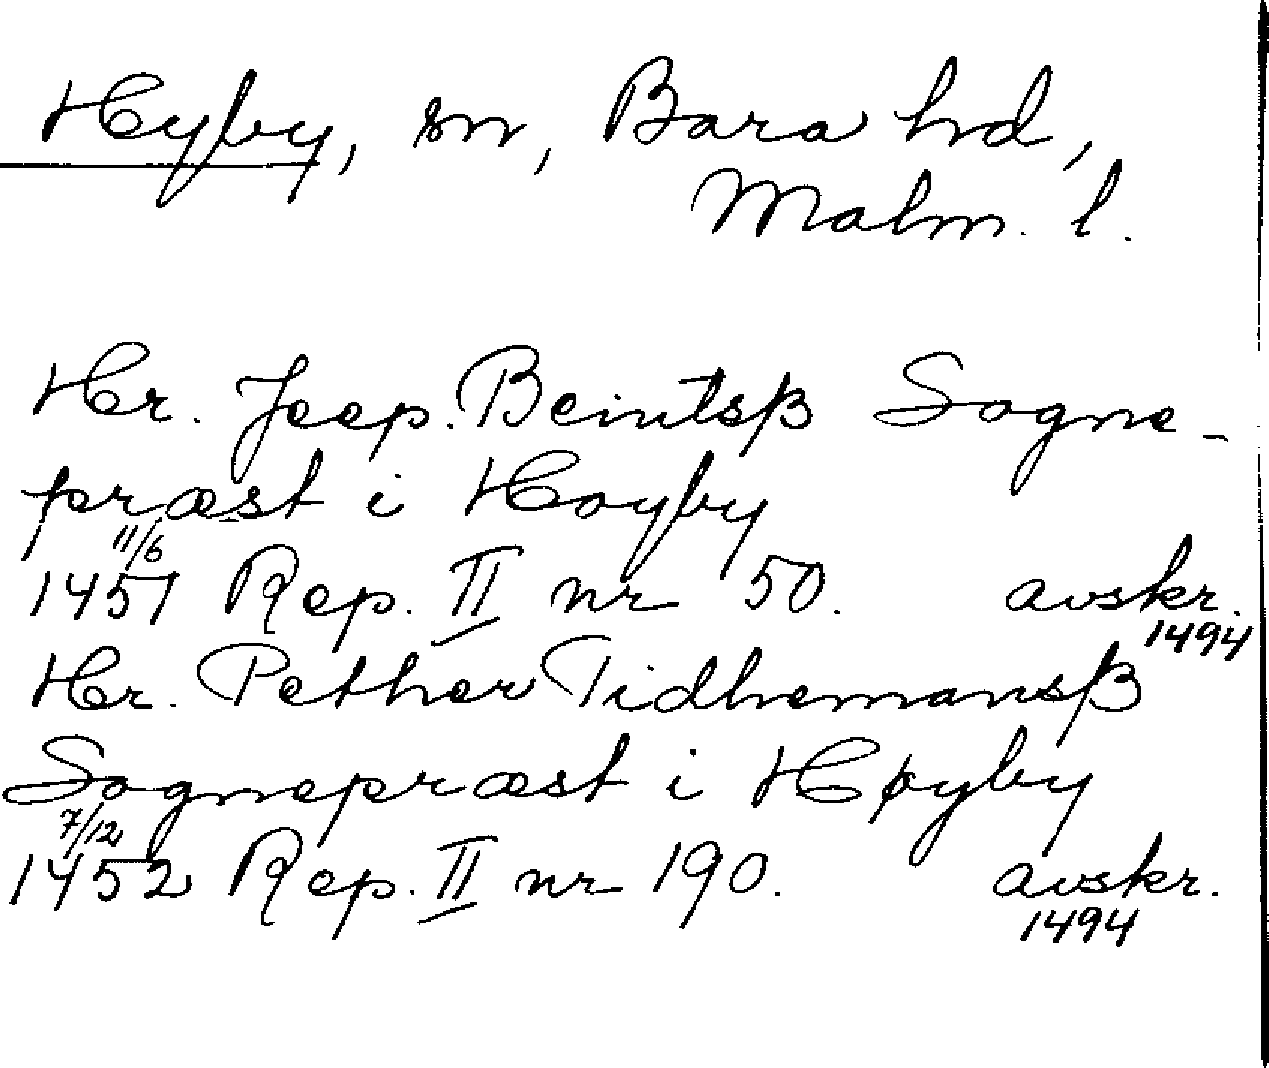 Hyby, sn, Bara hd,
Malm. l.
Hr. Jeep. Beintsß Sogne-
præst i Hoyby
11/6
1451 Rep. II nr 50. avskr.
1494
Hr. Pether Tidhemansß
Sognepræst i Høyby
7/12
1452 Rep. II nr 190. avskr.
1494